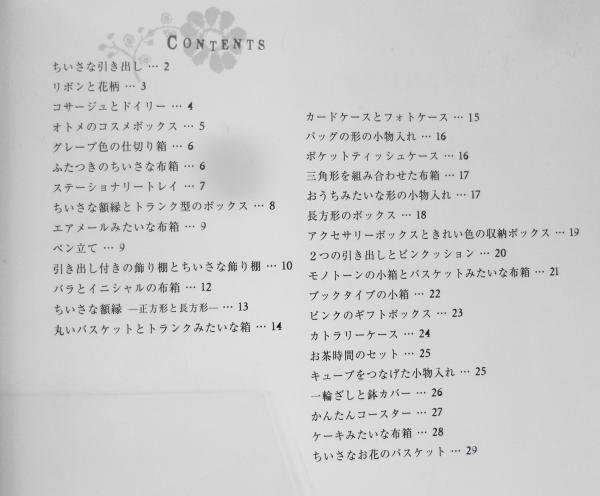 CONTENTS
ちいさな引き出し … 2
リボンと花柄 … 3
コサージュとドイリー … 4
オトメのコスメボックス … 5
グレープ色の仕切り箱 … 6
ふたつきのちいさな布箱 … 6
ステーショナリートレイ … 7
ちいさな額縁とトランク型のボックス … 8
エアメールみたいな布箱 … 9
ペン立て … 9
引き出し付きの飾り棚とちいさな飾り棚 … 10
バラとイニシャルの布箱 … 12
ちいさな額縁 ―正方形と長方形― … 13
丸いバスケットとトランクみたいな箱 … 14
カードケースとフォトケース … 15
バッグの形の小物入れ … 16
ポケットティッシュケース … 16
三角形を組み合わせた布箱 … 17
おうちみたいな形の小物入れ … 17
長方形のボックス … 18
アクセサリーボックスときれい色の収納ボックス … 19
2つの引き出しとピンクッション … 20
モノトーンの小箱とバスケットみたいな布箱 … 21
ブックタイプの小箱 … 22
ピンクのギフトボックス … 23
カトラリーケース … 24
お茶時間のセット … 25
キューブをつなげた小物入れ … 25
一輪ざしと鉢カバー … 26
かんたんコースター … 27
ケーキみたいな布箱 … 28
ちいさなお花のバスケット … 29